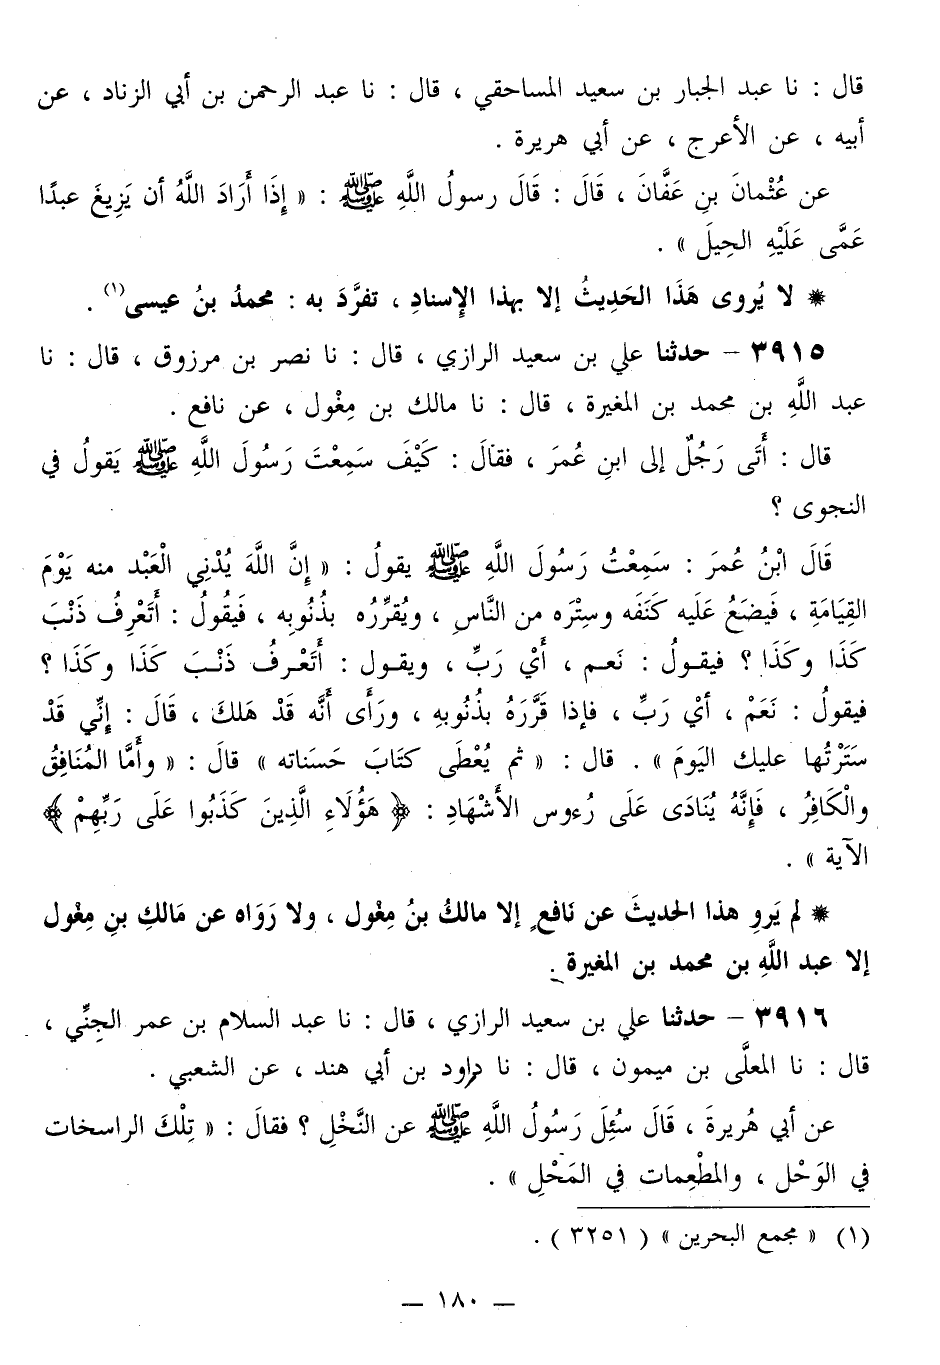 قال : نا عبد الجبار بن سعيد المساحقي ، قال : نا عبد الرحمن بن أبي الزناد ، عن
أبيه ، عن الأعرج ، عن أبي هريرة .
عن عُثْمانَ بنِ عَفَّانَ ، قَالَ : قَالَ رسولُ اللَّهِ ﷺ : « إِذَا أَرَادَ اللَّهُ أن يَزِيغَ عبدًا
عَمَّى عَلَيْهِ الحِيلَ » .
* لا يُروى هَذَا الحَدِيثُ إلا بهذا الإِسنادِ ، تفرَّدَ به : محمدُ بنُ عيسى(١) .
٣٩١٥ – حدثنا علي بن سعيد الرازي ، قال : نا نصر بن مرزوق ، قال : نا
عبد اللَّهِ بن محمد بن المغيرة ، قال : نا مالك بن مِغْول ، عن نافع .
قال : أَتَى رَجُلٌ إلى ابنِ عُمرَ ، فقالَ : كَيْفَ سَمِعْتَ رَسُولَ اللَّهِ ﷺ يَقولُ في
النجوى ؟
قَالَ ابْنُ عُمرَ : سَمِعْتُ رَسُولَ اللَّهِ ﷺ يقولُ : « إِنَّ اللَّهَ يُدْنِي الْعَبْد منه يَوْمَ
القِيَامَةِ ، فَيضَعُ عَلَيه كَنَفَه وسِتْرَه من النَّاسِ ، ويُقرِّرُه بذُنُوبِه ، فَيقُولُ : أَتَعْرِفُ ذَنْبَ
كَذَا وكَذَا ؟ فيقـولُ : نَعـم ، أَيْ رَبِّ ، ويقـول : أَتَعْـرفُ ذَنْـبَ كَذَا وكَذَا ؟
فيقولُ : نَعَمْ ، أيْ رَبِّ ، فإذا قَرَّرَهُ بذُنُوبهِ ، ورَأَى أَنَّه قَدْ هَلكَ ، قَالَ : إِنِّي قَدْ
سَتَرْتُها عليك اليَومَ » . قال : « ثم يُعْطَى كتَابَ حَسَناته » قالَ : « وأَمَّا المُنَافِقُ
والْكَافِرُ ، فَإِنَّهُ يُنَادَى عَلَى رُءوس الأَشْهَادِ : ﴿ هَؤُلَاءِ الَّذِينَ كَذَبُوا عَلَى رَبِّهِمْ ﴾
الآية » .
* لم يَروِ هذا الحديثَ عن نَافعٍ إلا مالكُ بنُ مِغْول ، ولا رَوَاه عن مَالكِ بنِ مِغْول
إلا عبد اللَّهِ بن محمد بن المغيرة .
٣٩١٦ – حدثنا علي بن سعيد الرازي ، قال : نا عبد السلام بن عمر الجِنِّي ،
قال : نا المعلَّى بن ميمون ، قال : نا داود بن أبي هند ، عن الشعبي .
عن أبي هُريرةَ ، قَالَ سُئِلَ رَسُولُ اللَّهِ ﷺ عن النَّخْلِ ؟ فقالَ : « تِلْكَ الراسخات
في الوَحْل ، والمطْعِمات في المَحْلِ » .
(١) « مجمع البحرين » ( ٣٢٥١ ) .
— ١٨٠ —